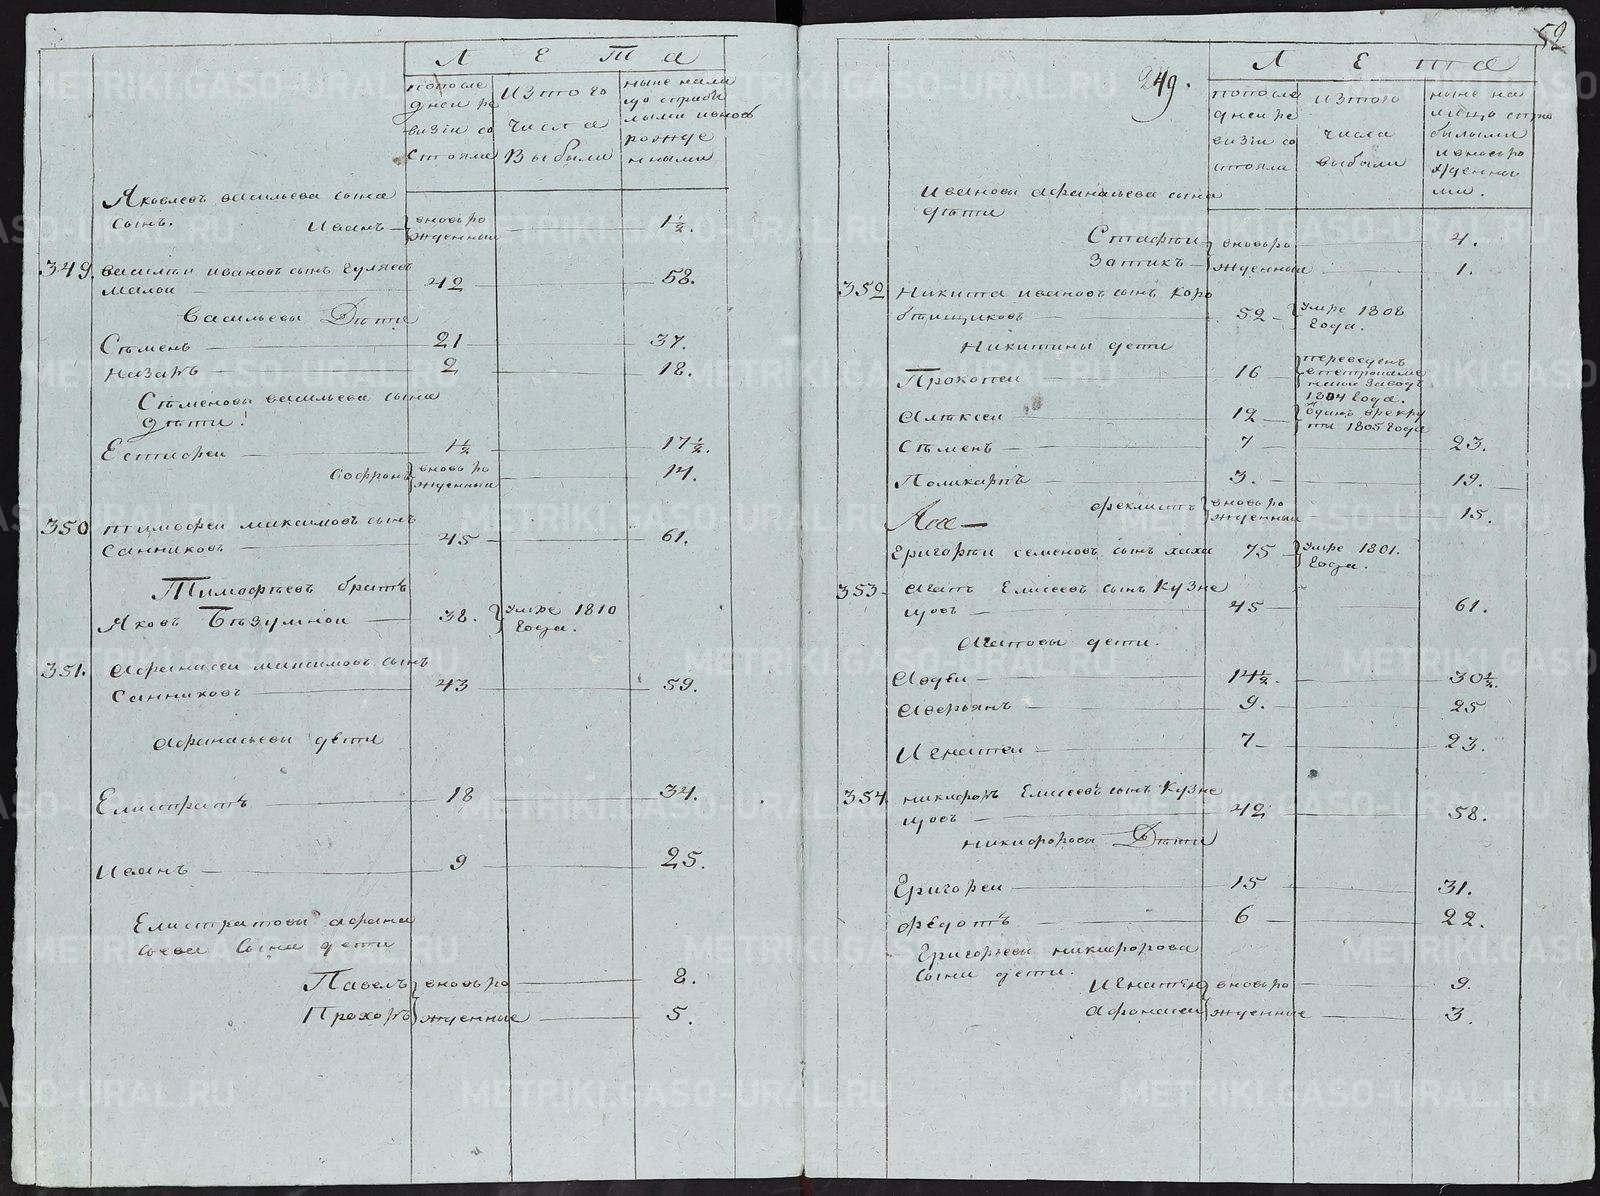 Л Е т а
попосле
дней ре
визiи со
стояли
изтого
числа
выбыли
ныне нали
цо сприбы
лыми ивновь
рожде
нными
Яковлевъ васильева сына
сынъ. Иванъ вновь ро
жденный 1½.
349. василеи ивановъ сынъ гуляевъ
малои 42 58.
Васильевы Дѣти
Сѣменъ 21 37.
назаръ 2 18.
Сѣменовы васильева сына
дѣти:
Естифеи 1½ 17½.
Софронъ вновь ро
жденныи 14.
350 тимофеи максимовъ сынъ
Санниковъ 45 61.
Тимофѣевъ братъ
Яковъ Бѣзумнои 38. умре 1810
года.
351. афанасеи максимовъ сынъ
Санниковъ 43 59.
афанасьевы дети
Елистратъ 18 34.
иванъ 9 25.
Елистратовы афана
сьева сына дети
Павелъ вновь ро 8.
Прохоръ жденные 5.
52
249.
Л Е т а
попосле
дней ре
визiи со
стояли
изтого
числа
выбыли
ныне на
лицо спри
былыми
ивновь ро
жденны
ми.
Ивановы афанасьева сына
дѣти
вновь ро 4.
жденныи 1.
352 Никита ивановъ сынъ Коро
бѣищиковъ 52 умре 1808
года.
Никитины дети
Прокопеи 16 переведенъ
заводъ
1804 года.
Алѣксеи 12 Отданъ врекру
ты 1805 года
Сѣменъ 7 23.
Поликарпъ 3. 19.
феклистъ вновь ро
жденныи 15.
Григорѣи семеновъ сынъ 75 умре 1801.
года.
353 Агапъ Елисеевъ сынъ Кузне
цовъ 45 61.
Агаповы дети.
Авдѣи 14½. 30½.
Аверьянъ 9. 25
Игнатеи 7 23.
354. никифоръ Елисеевъ сынъ Кузне
цовъ 42 58.
никифоровы Дѣти
Григореи 15 31.
Федотъ 6 22.
Григорьевы никифорова
сына дети.
Игнатеи вновь ро 9.
Афонасеи жденные 3.
METRIKI.GASO-URAL.RU